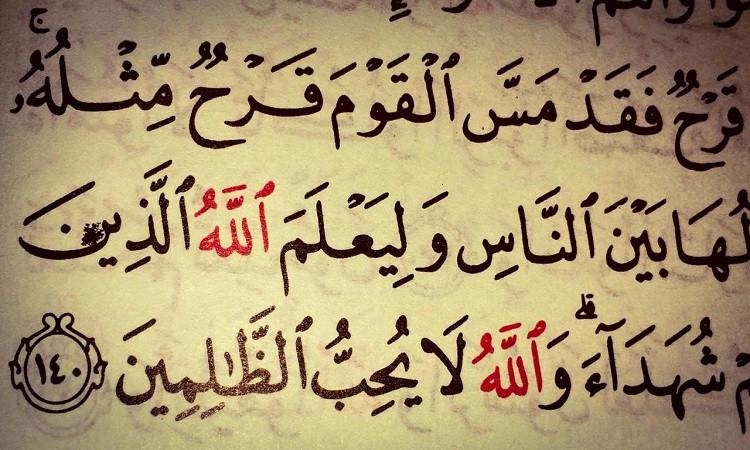 قَرْحٌ فَقَدْ مَسَّ ٱلْقَوْمَ قَرْحٌ مِّثْلُهُۥ ۚ
بَيْنَ ٱلنَّاسِ وَلِيَعْلَمَ ٱللَّهُ ٱلَّذِينَ
شُهَدَآءَ ۗ وَٱللَّهُ لَا يُحِبُّ ٱلظَّٰلِمِينَ ١٤٠